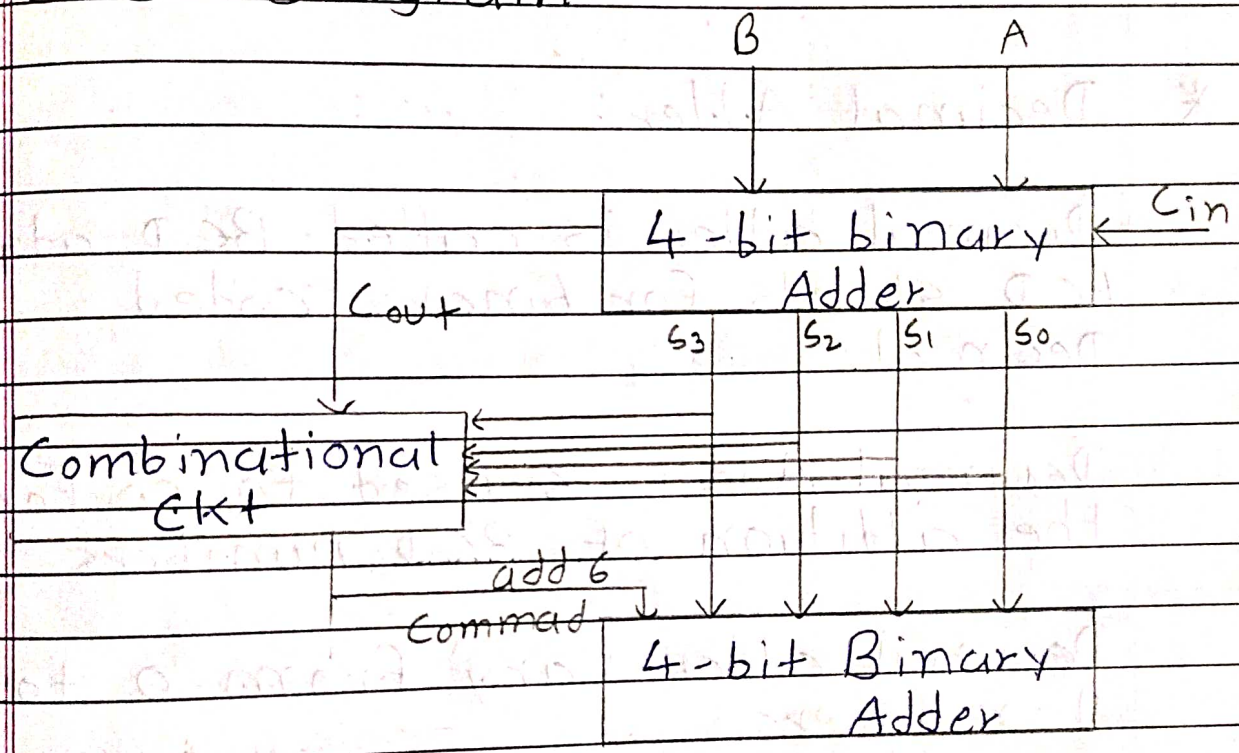 B A
Cin
4-bit binary
Adder
Cout
S3 S2 S1 S0
Combinational
Ckt
add 6
Commad
4-bit Binary
Adder